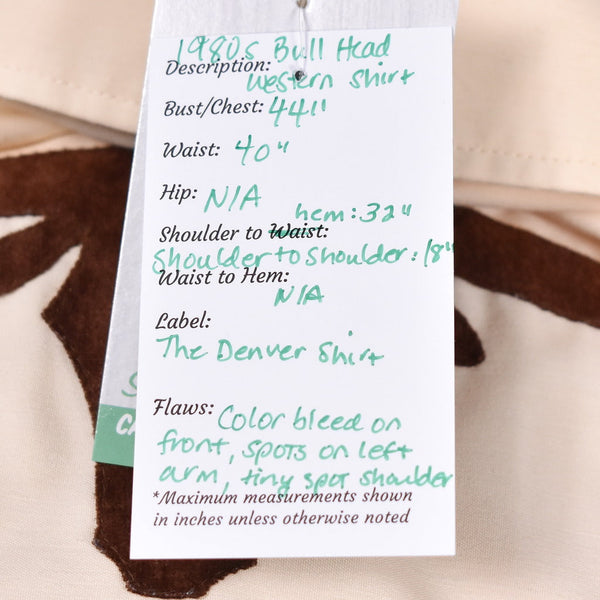 1980s Bull Head
Description:
Western Shirt
Bust/Chest: 44"
Waist: 40"
Hip: N/A
hem: 32"
Shoulder to Waist:
Shoulder to Shoulder: 18"
Waist to Hem:
N/A
Label:
The Denver Shirt
Flaws: Color bleed on
front, spots on left
arm, tiny spot shoulder
*Maximum measurements shown
in inches unless otherwise noted